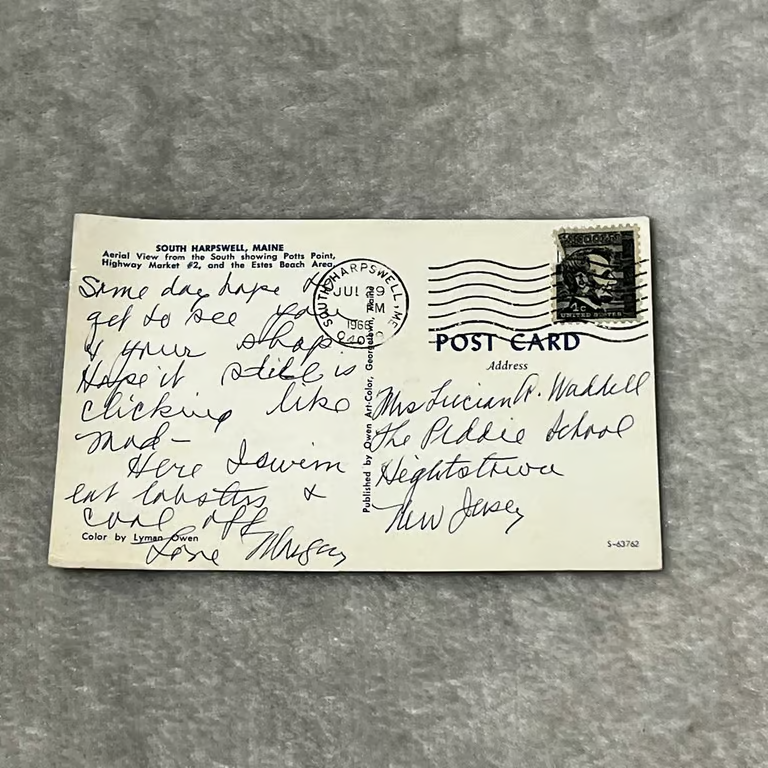 SOUTH HARPSWELL, MAINE
Aerial View from the South showing Potts Point,
Highway Market #2, and the Estes Beach Area.
Some day hope to
get to see you
& your shop.
Hope it still is
clicking like
mad-
Here I swim
eat lobsters &
cool off
Love
Color by Lyman Owen
Published by Owen Art-Color, Georgetown, Maine
SOUTH HARPSWELL, ME
JUL 9
M
1968
040
1c
UNITED STATES
POST CARD
Address
Mrs Lucian A. Waddell
The Peddie School
Hightstown
New Jersey
S-63762